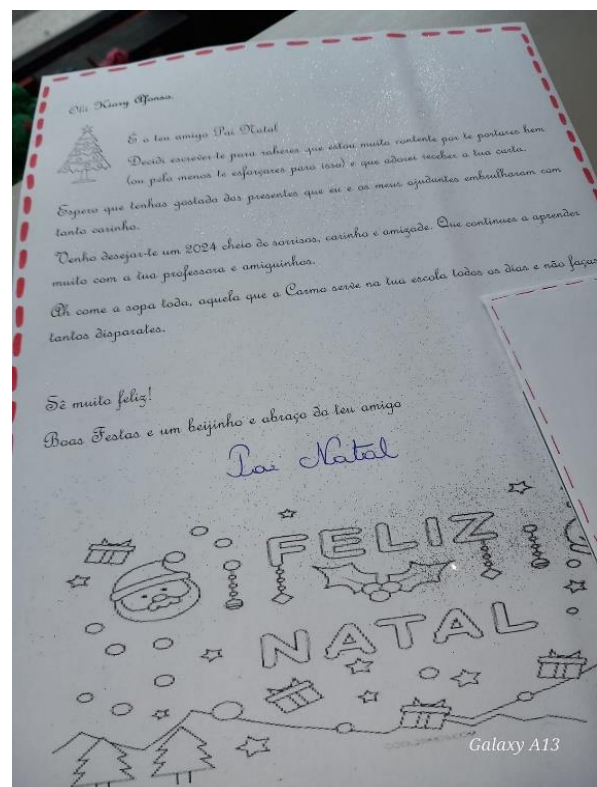 Olá Kiary Afonso,
É o teu amigo Pai Natal
Decidi escrever-te para saberes que estou muito contente por te portares bem
(ou pelo menos te esforçares para isso) e que adorei receber a tua carta.
Espero que tenhas gostado dos presentes que eu e os meus ajudantes embrulharam com
tanto carinho.
Venho desejar-te um 2024 cheio de sorrisos, carinho e amizade. Que continues a aprender
muito com a tua professora e amiguinhos.
Ah come a sopa toda, aquela que a Carmo serve na tua escola todos os dias e não faças
tantos disparates.
Sê muito feliz!
Boas Festas e um beijinho e abraço do teu amigo
Pai Natal
FELIZ
NATAL
Galaxy A13